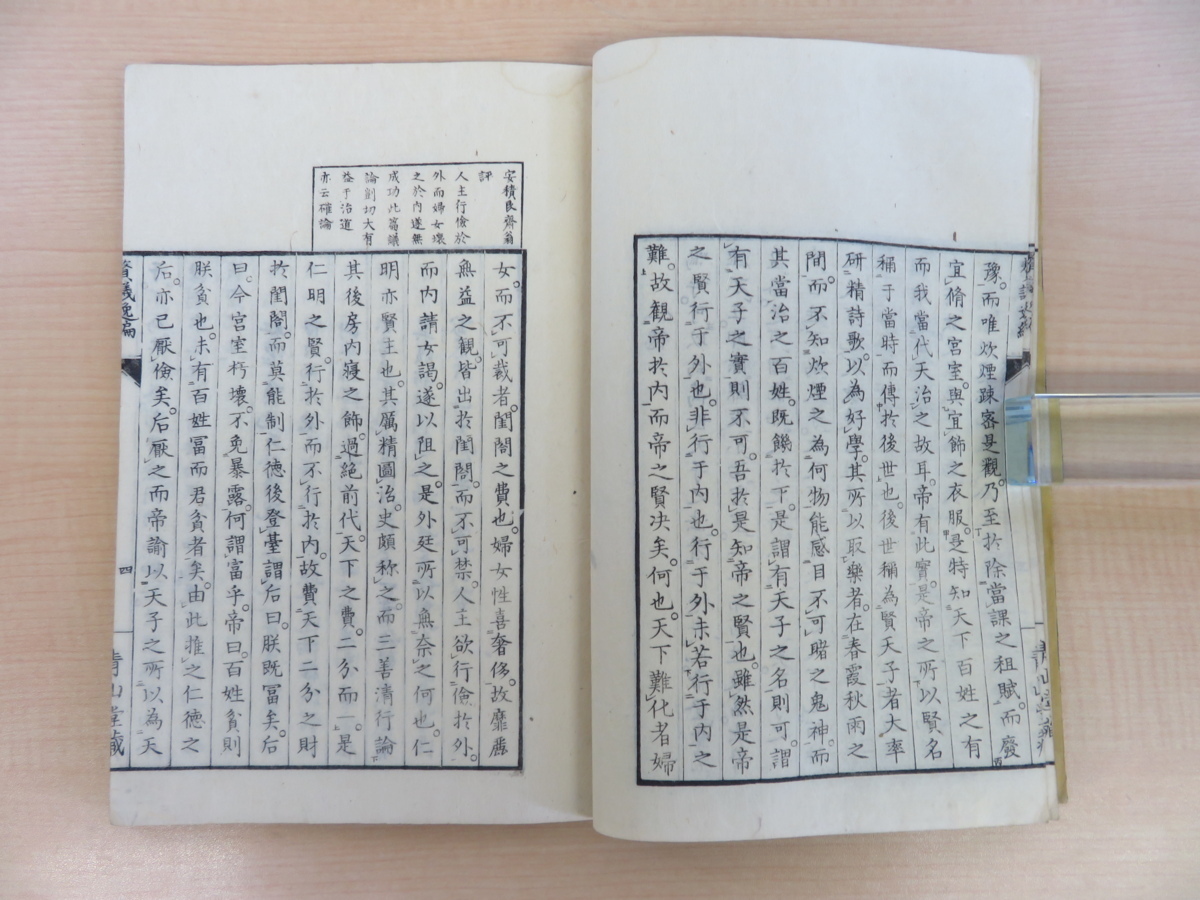 豫。而唯炊煙疎密是觀。乃至於除當課之租賦。而廢
宜脩之宮室。與宜飾之衣服。是特知天下百姓之有
而我當代天治之故耳。帝有此實。是帝之所以賢名
稱于當時。而傳於後世也。後世稱為賢天子者。大率
研精詩歌。以為好學。其所以取樂者。在春霞秋雨之
間。而不知炊煙之為何物。能感目不可睹之鬼神。而
其當治之百姓。既饑於下。是謂有天子之名則可。謂
有天子之實則不可。吾於是知帝之賢也。雖然是帝
之賢行于外也。非行于內也。行于外未若行于內之
難。故觀帝於內。而帝之賢決矣。何也。天下難化者婦
安積艮齋翁
評
人主行儉於
外而婦女壞
之於內遂無
成功此篇議
論剴切大有
益于治道
亦云確論
女。而不可裁者。閨閤之費也。婦女性喜奢侈。故靡麗
無益之觀。皆出於閨閤。而不可禁。人主欲行儉於外。
而內請女謁。遂以阻之。是外廷所以無奈之何也。仁
明亦賢主也。其厲精圖治。史頗稱之。而三善清行論
其後房內寢之飾。過絕前代。天下之費。二分而一。是
仁明之賢。行於外而不行於內。故費天下二分之財
於閨閤。而莫能制。仁德後登臺。謂后曰。朕既富矣。后
曰。今宮室朽壞。不免暴露。何謂富乎。帝曰。百姓貧則
朕貧也。未有百姓富而君貧者矣。由此推之。仁德之
后。亦已厭儉矣。后厭之而帝諭以天子之所以為天
四
青山堂藏